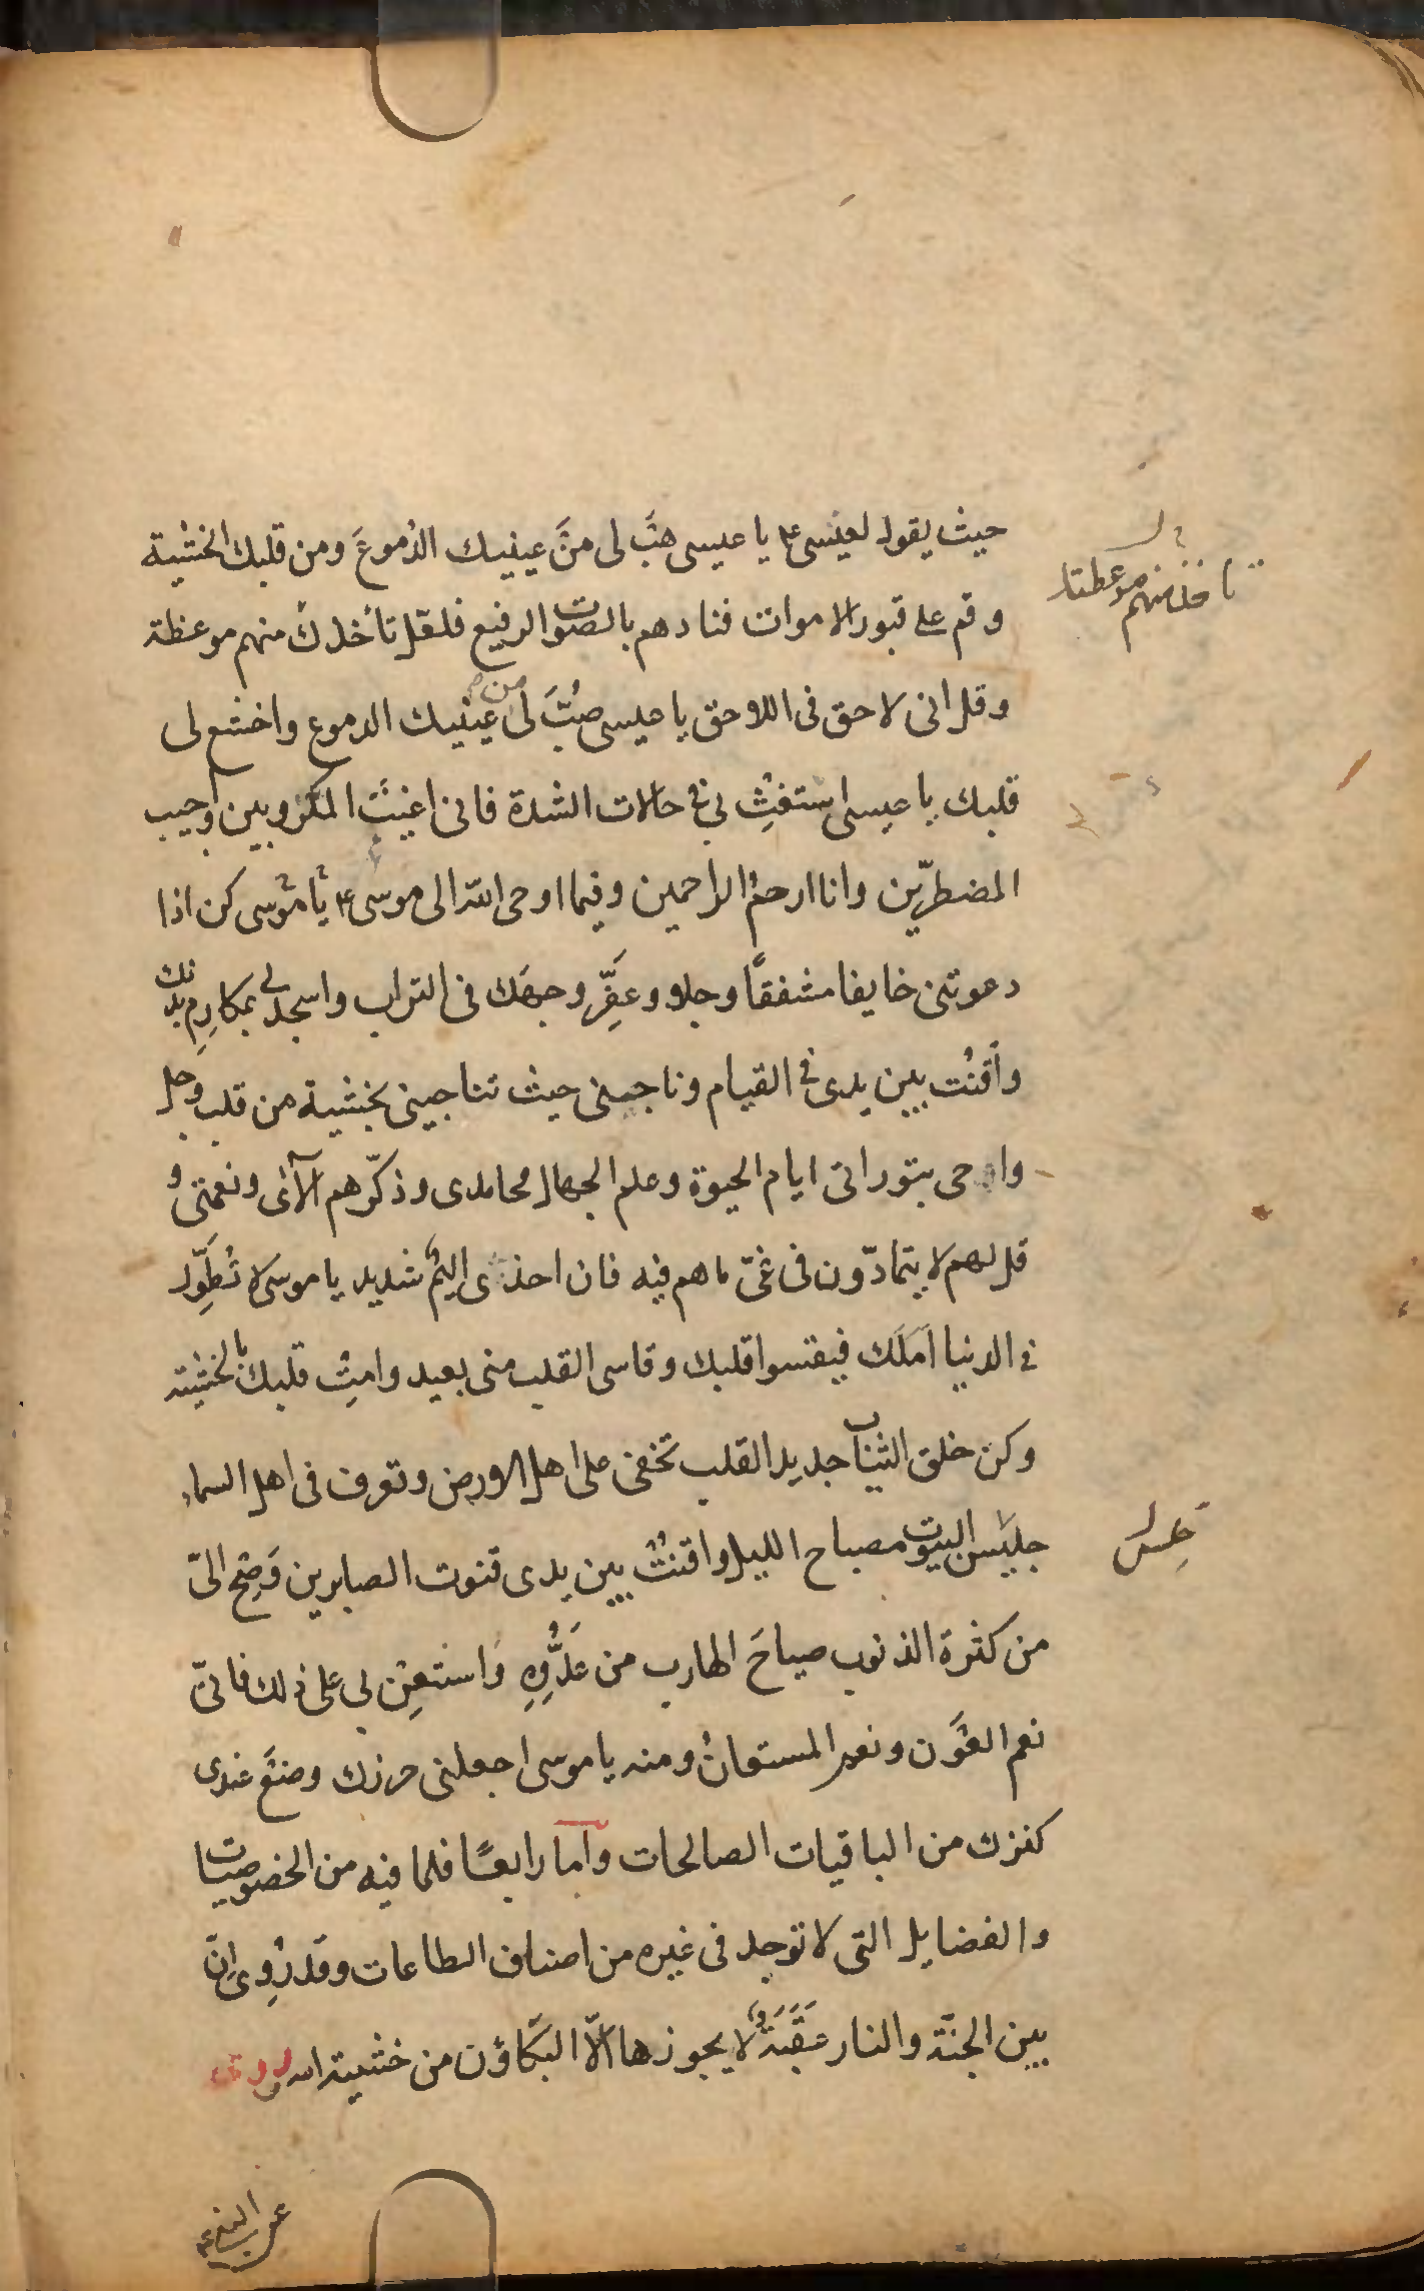 حيث يقول لعيسى ع يا عيسى هَب لى من عينيك الدموعَ ومن قلبك الخشية
وقم على قبور الاموات فنادهم بالصوت الرفيع فلعلك تأخذ منهم موعظة
تاخذ منهم موعظتك
وقل انى لاحق فى اللاحق يا عيسى صُبَّ لى من عينيك الدموع واخشع لى
قلبك يا عيسى استغِث بى فى حالات الشدة فانى اغيث المكروبين واجيب
المضطرّين وانا ارحمُ الراحمين وفيما اوحى الله الى موسى ع يا موسى كن اذا
دعوتنى خايفا مشفقًا وجلا وعَفِّر وجهَك فى التراب واسجد لى بمكارِمِ بدنك
وأقنُت بين يدى فى القيام وناجينى حيث تناجينى بخشية من قلب وجل
واحى بتوراتى ايام الحيوة وعلم الجهال محامدى وذكّرهم آلائى ونعمتى و
قل لهم لا يتمادّون فى غىّ ما هم فيه فان اخذى اليمٌ شديد يا موسى لا تُطَوِّل
فى الدنيا اَمَلَك فيقسوا قلبك وقاسى القلب منى بعيد وامِت قلبك بالخشية
وكن خلق الثياب جديد القلب تخفى على اهل الارض وتعرف فى اهل السماء
جليس البيوت مصباح الليل واقنُت بين يدى قنوت الصابرين وَصِح الىّ
حِلس
من كثرة الذنوب صياحَ الهارب من عَدُّوِهِ وَاستعِن بى على ذلك فانىّ
نعم العَون ونعم المستعانُ ومنه يا موسى اجعلنى حرزك وضَع عندى
كنزك من الباقيات الصالحات وأما رابعًا فلما فيه من الخصوصيات
والفضايل التى لا توجد فى غيره من اصناف الطاعات وقد رُوِى اِنّ
بين الجنّة والنار عَقَبَةٌ لا يجوزها الّا البكّاؤن من خشية الله وروى
عن النبى ص